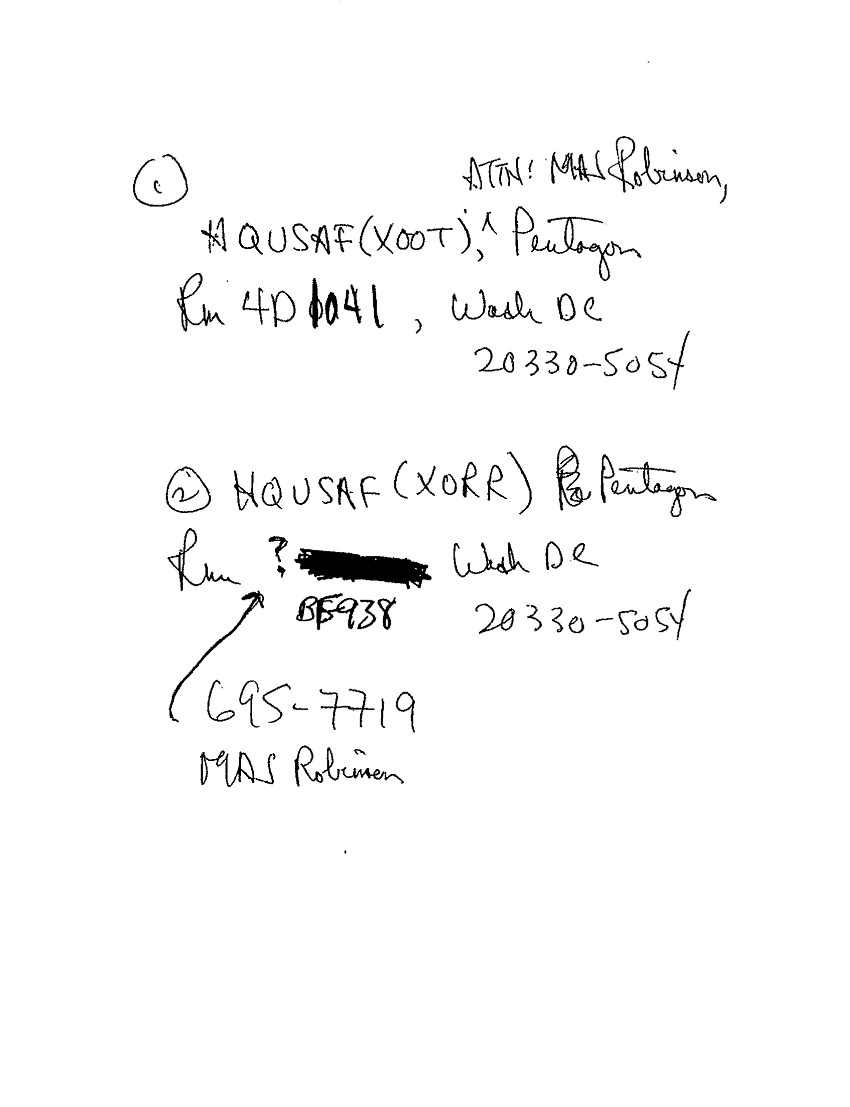 ① ATTN: MAJ Robinson,
HQ USAF (XOOT), ^ Pentagon
Rm 4D1041, Wash DC
20330-5054
② HQ USAF (XORR) Pentagon
Rm ? Wash DC
BF938 20330-5054
695-7719
MAJ Robinson